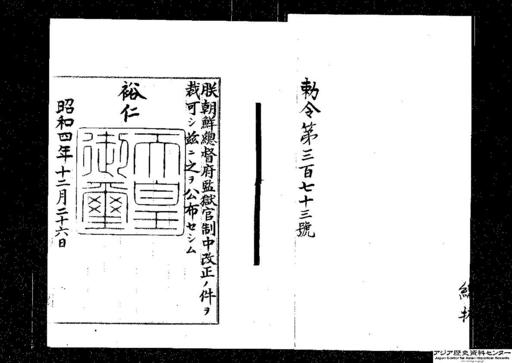 勅令第三百七十三號
朕朝鮮總督府監獄官制中改正ノ件ヲ
裁可シ玆ニ之ヲ公布セシム
裕仁
天皇
御璽
昭和四年十二月二十六日
アジア歴史資料センター
Japan Center for Asian Historical Records